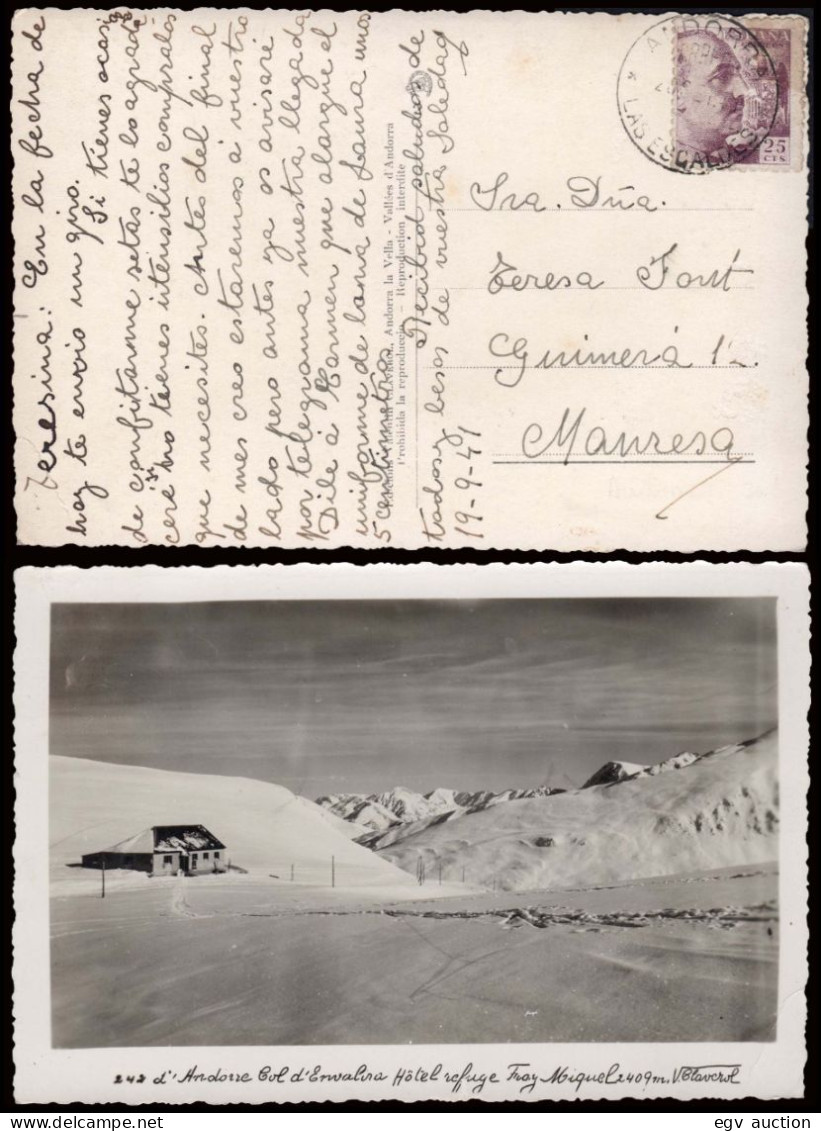 Teresina: En la fecha de
hoy te envio un giro.
Si tienes ocasi
de confitarme setas te lo agrade
cere si no tienes utensilios compralos
que necesites. Antes del final
de mes creo estaremos á vuestro
lado pero antes ya os avisare
por telegrama nuestra llegada
Dile á Carmen que alargue el
uniforme de lana de Laura unos
5 centimetros
Recibid saludos de
todos y besos de vuestra Soledad
19-9-41
Andorra la Vella - Vallées d'Andorra
Prohibida la reproducción - Reproduction interdite
ANDORRA
LAS ESCALDES
25
CTS
Sra. Dña.
Teresa Font
Guimerá 1
Manresa
242 d'Andorre Col d'Envalira Hôtel refuge Fray Miquel 2409m. V. Claverol
egv auction